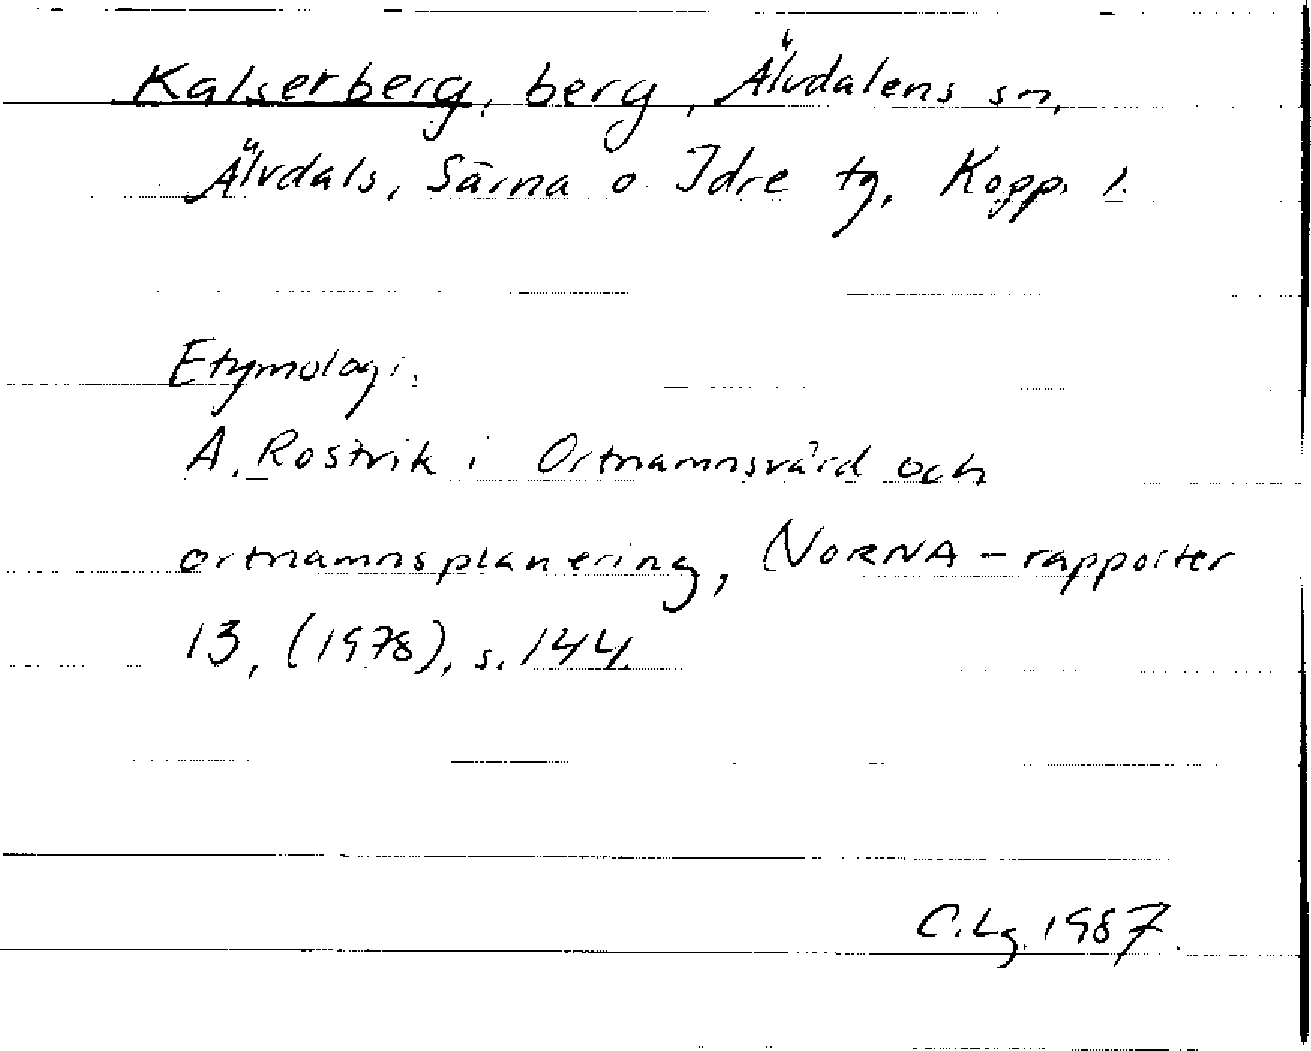 Kalserberg, berg, Älvdalens sn,
Älvdals, Särna o Idre tg, Kopp. l.
Etymologi:
A. Rostvik i Ortnamnsvård och
ortnamnsplanering, NORNA-rapporter
13, (1978), s. 144.
C. Lg. 1987.